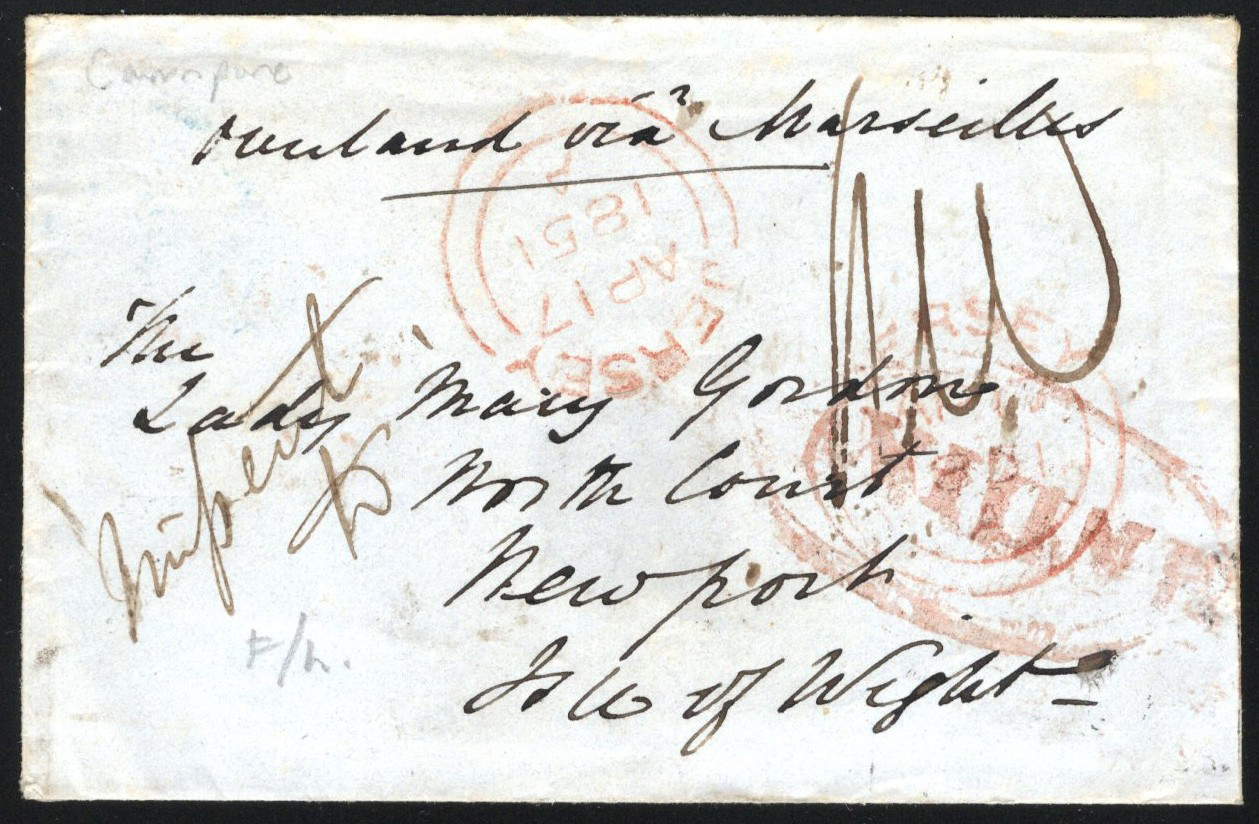 Cawnpore
Overland via Marseilles
JERSEY
AP 17
1851
The
Lady Mary Gordon
North Court
Newport
Isle of Wight
JERSEY
1851
F/h.